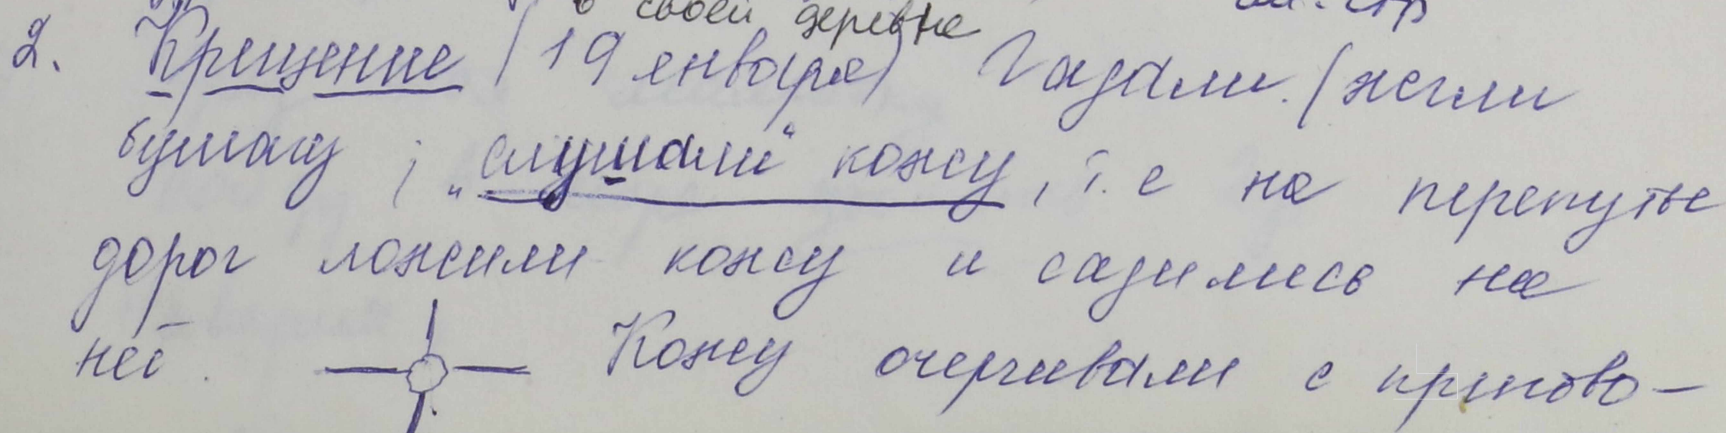 в своей деревне
2. Крещение (19 января) Гадали. (жгли
бумагу ; „слушали" кожу, т.е на перепутье
дорог ложили кожу и садились на
ней. Кожу очерчивали с пригово-